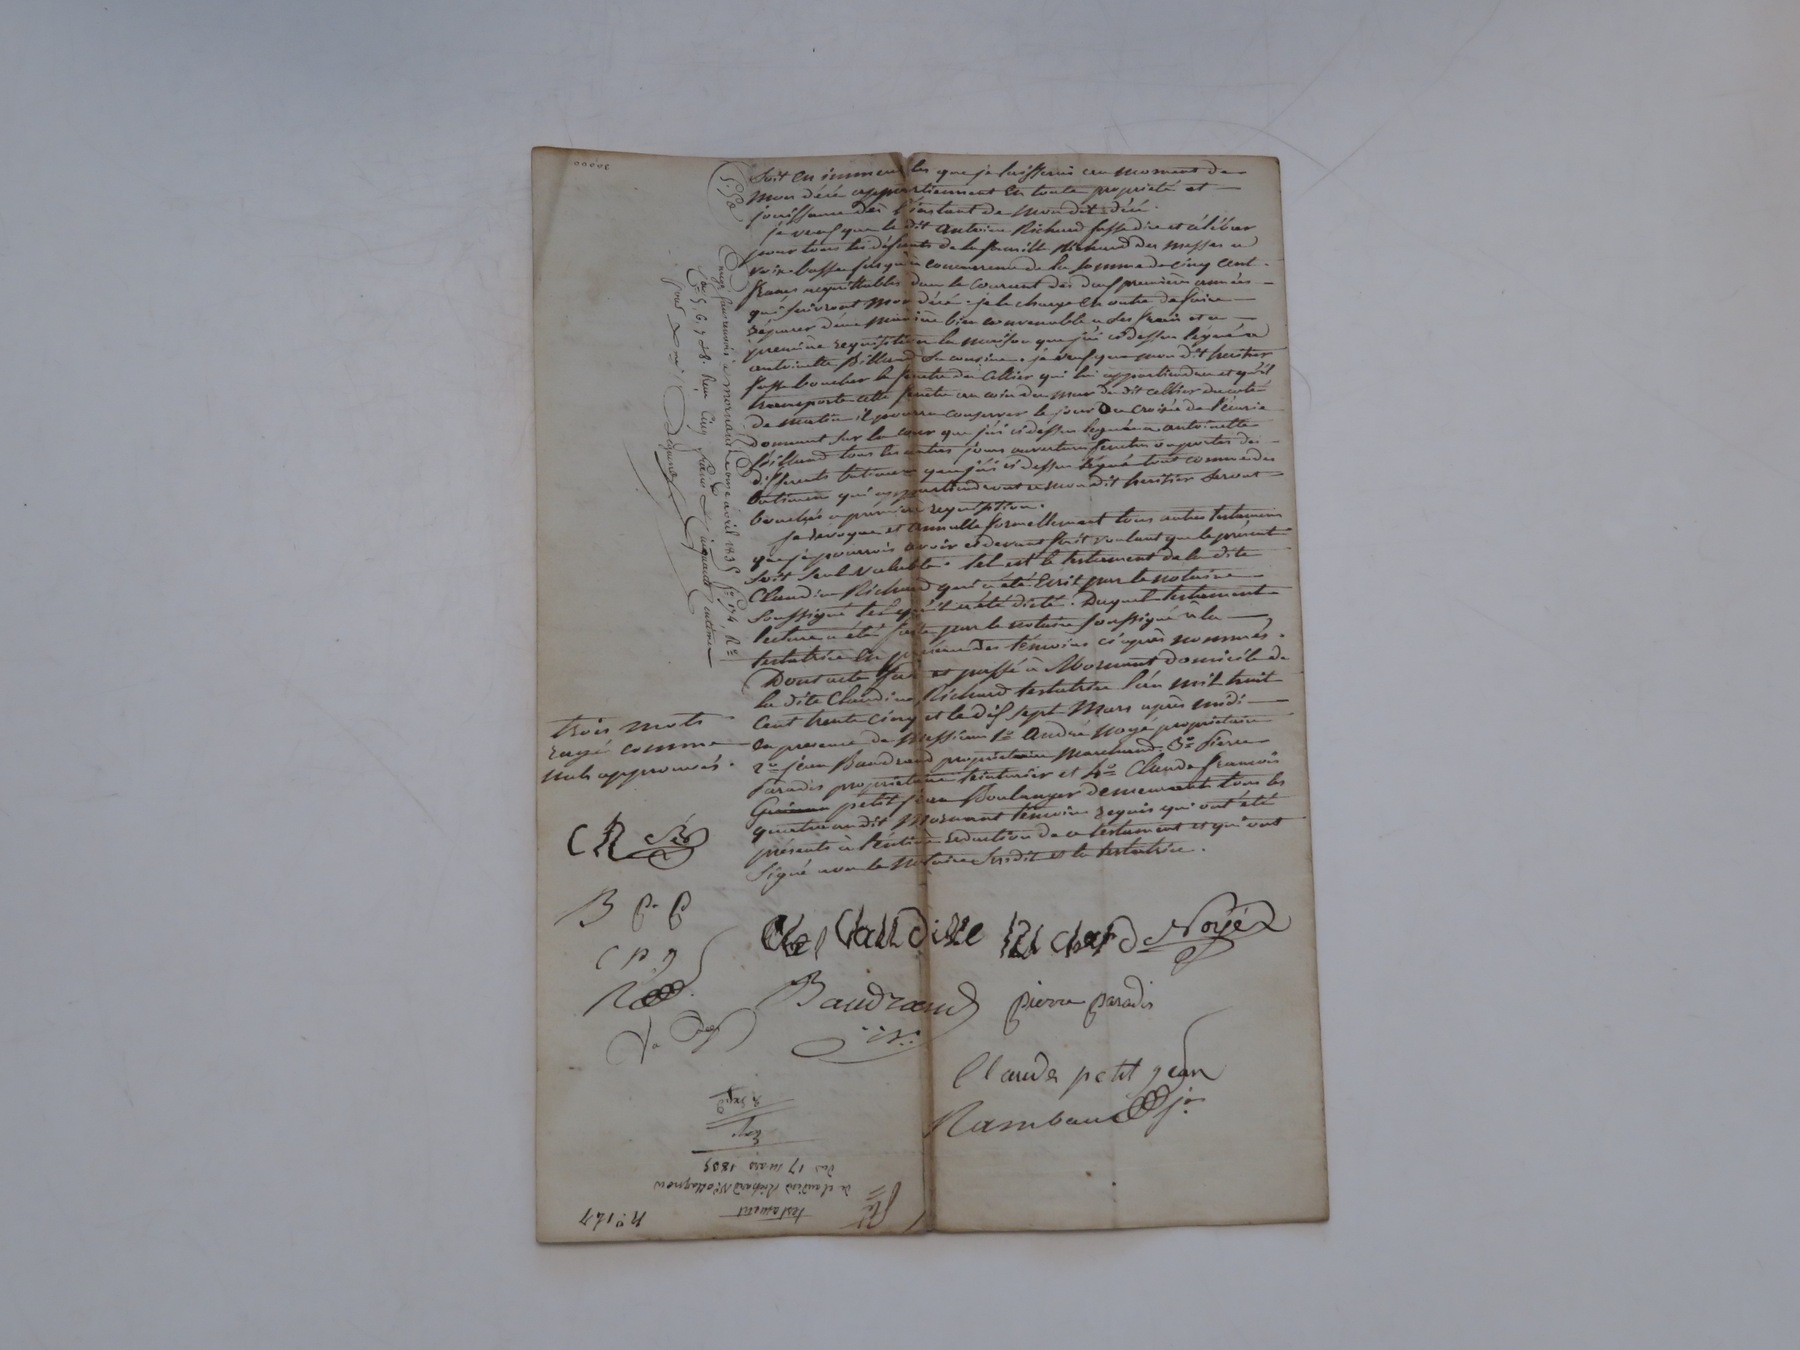 Soit en immeubles que je laisserai au moment de
mon décé appartiennent en toute propriété et
jouissance dès l'instant de mon dit décé.
je veux que le dit Antoine Richard fasse dire et célébrer
pour tous les défunts de la famille Richard des messes a
voix basse jusqu'a concurrence de la somme de cinq cent
francs acquittables dans le courant des deux premières années
qui suivront mon décé. je le charge en outre de faire
séparer d'une manière bien convenable a ses frais et a
première requisition la maison que j'ai ci dessus léguée a
antoinette Billard sa cousine. je veux que mon dit heritier
fasse boucher la fenêtre du cellier qui lui appartiendra et qu'il
transporte cette fenêtre au coin du mur du dit cellier du coté
de matin il pourra conserver le jour ou croisée de l'écurie
donnant sur la cour que j'ai ci dessus léguée a antoinette
Billard tous les autres jours ouvertures fenêtres ou portes des
differents batimens que j'ai ci dessus légué tout comme des
batimens qui appartiendront a mon dit heritier seront
bouchés a première requisition.
je révoque et annulle formellement tous autres testamens
que je pourrois avoir ci devant fait voulant que le présent
soit seul valable. tel est le testament de la dite
Claudine Richard qui a été écrit par le notaire
soussigné tel qu'il a été dicté. Duquel testament
lecture a été faite par le notaire soussigné à la
testatrice en présence des témoins ci après nommés.
Dont acte fait et passé à Mornant domicile de
la dite Claudine Richard testatrice l'an mil huit
cent trente cinq et le dix sept Mars après midi
en presence de Messieurs 1º André Noyé propriétaire
2º jean Baudrand propriétaire Marchand 3º Pierre
Paradis propriétaire teinturier et 4º Claude francois
petit jean Boulanger demeurants tous les
quatre au dit Mornant témoins requis qui ont été
présents à l'entière rédaction de ce testament et qui ont
signé avec le Notaire susdit et la testatrice.
trois mots
rayés comme
nuls approuvés.
C R
B P. P
C P. J
Claudine Richard Noyé
Baudrand
Pierre Paradis
Claude petit jean
Rambaud
Enregistré à mornant le onze avril 1835 fº 174, Rº
Cases 5. 6. 7 et 8. Reçu cinq francs cinquante centimes
Nº 147
testament
de Claudine Richard
du 17 mars 1835
Exp.